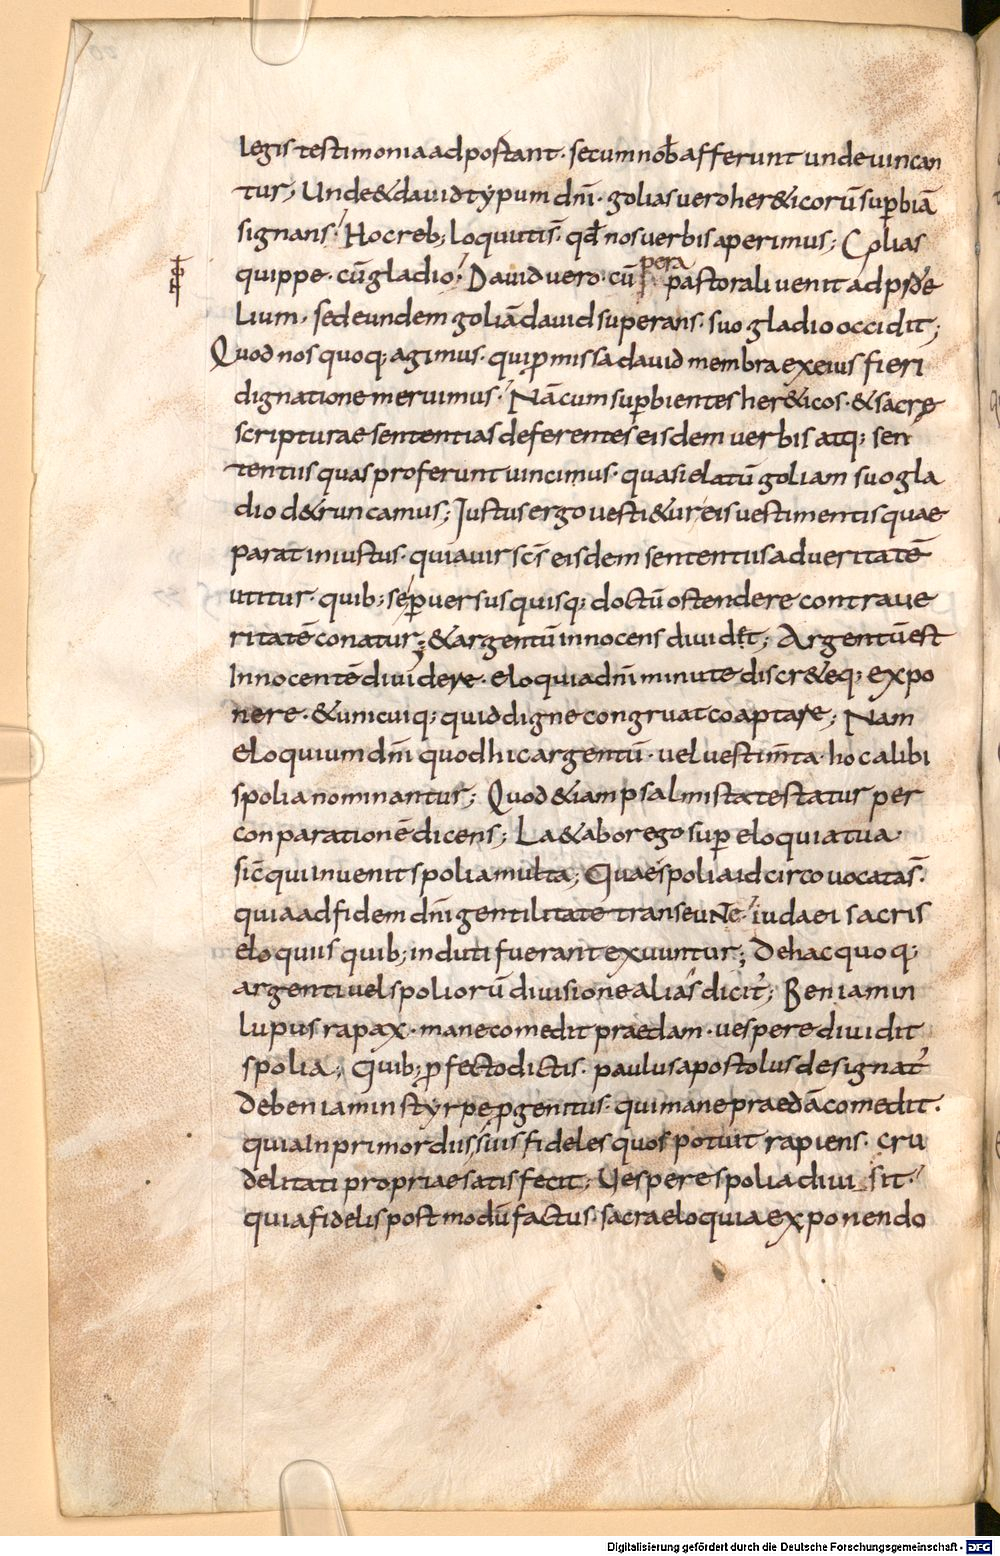 legis testimonia adportant · secum nob̄ afferunt unde vincan
tur; Unde & dauid typum dn̄i · golias uero her&icorū sup̄biā
signans · Hoc reb; loquutis̄ · qđ nos uerbis aperimus; Golias
quippe · cū gladio · Dauid uero · cū pera pastorali uenit ad proe
lium · sed eundem goliā dauid superans · suo gladio occidit;
Quod nos quoq; agimus · qui p̄missa dauid membra ex eius fieri
dignatione meruimus · Nā cum sup̄bientes her&icos · & sacrę
scripturae sententias deferentes eisdem uerbis atq; sen
tentiis quas proferunt uincimus · quasi elatū goliam suo gla
dio d&runcamus; Iustus ergo uesti&ur eis uestimentis quae
parat iniustus · quia uir sc̄s eisdem sententiis ad ueritatē
utitur · quib; se p̄uersus quisq; doctū ostendere contra ue
ritatē conatur; & argentū innocens diuidet; Argentū est
Innocentē diuidere · eloquia dn̄i minute discr&eq; expo
nere · & unicuiq; quid digne congruat coaptare; Nam
eloquium dn̄i quod hic argentū · uel uestim̄ta · hoc alibi
spolia nominantur; Quod &iam psalmista testatur per
conparationē dicens; La&abor ego sup̄ eloquia tua ·
sic̄ qui inuenit spolia multa; Quae spolia idcirco uocatas̄ ·
quia ad fidem dn̄i gentilitate transeunte · iudaei sacris
eloquiis quib; induti fuerant exuuntur; De hac quoq;
argenti uel spoliorū diuisione alias dicit̄; Beniamin
lupus rapax · mane comedit praedam · uespere diuidit
spolia; Quib; ꝓfecto dictis · paulus apostolus designat̄
De beniamin styrpe ꝓgenitus · qui mane praedā comedit ·
quia In primordiis suis fideles quos potuit rapiens · cru
delitati propriae satis fecit; Uespere spolia diui sit ·
quia fidelis postmodū factus · sacra eloquia exponendo
Digitalisierung gefördert durch die Deutsche Forschungsgemeinschaft - DFG